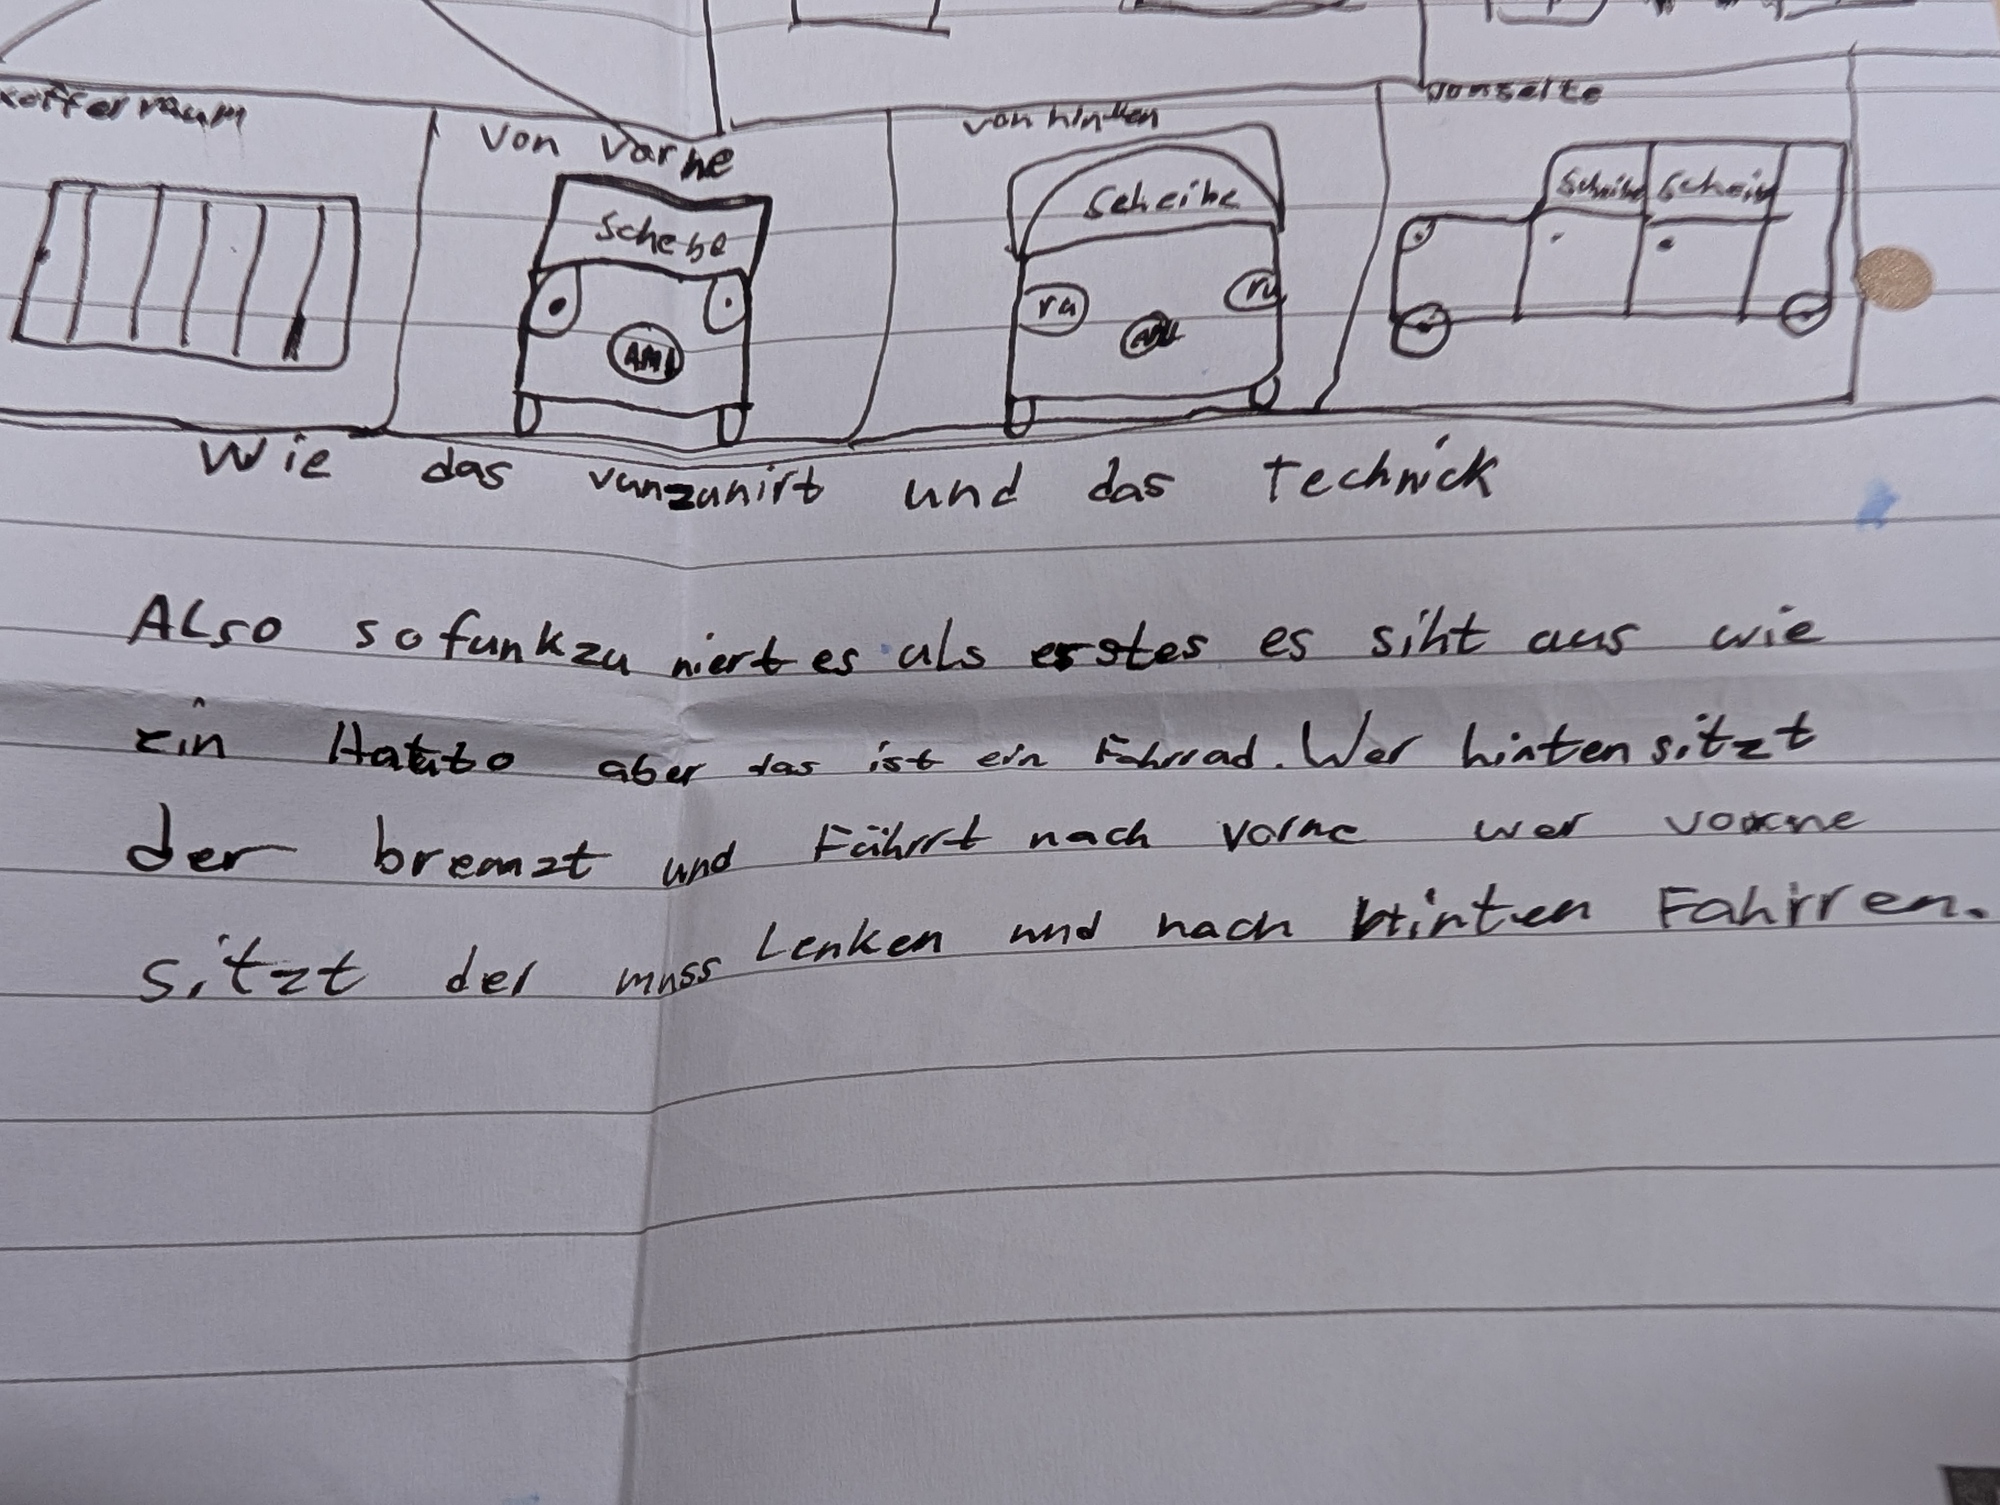 kofferraum
von varne
von hinten
vonseite
Schebe
AMI
Scheibe
ra
ru
Scheibe Scheib
Wie das vunzunirt und das Technick
Also sofunkzu niert es als erstes es siht aus wie
ein Hatuto aber das ist ein Fahrrad. Wer hinten sitzt
der bremzt und Fährrt nach vorne wer vorne
sitzt der muss Lenken und nach Hinten Fahrren.